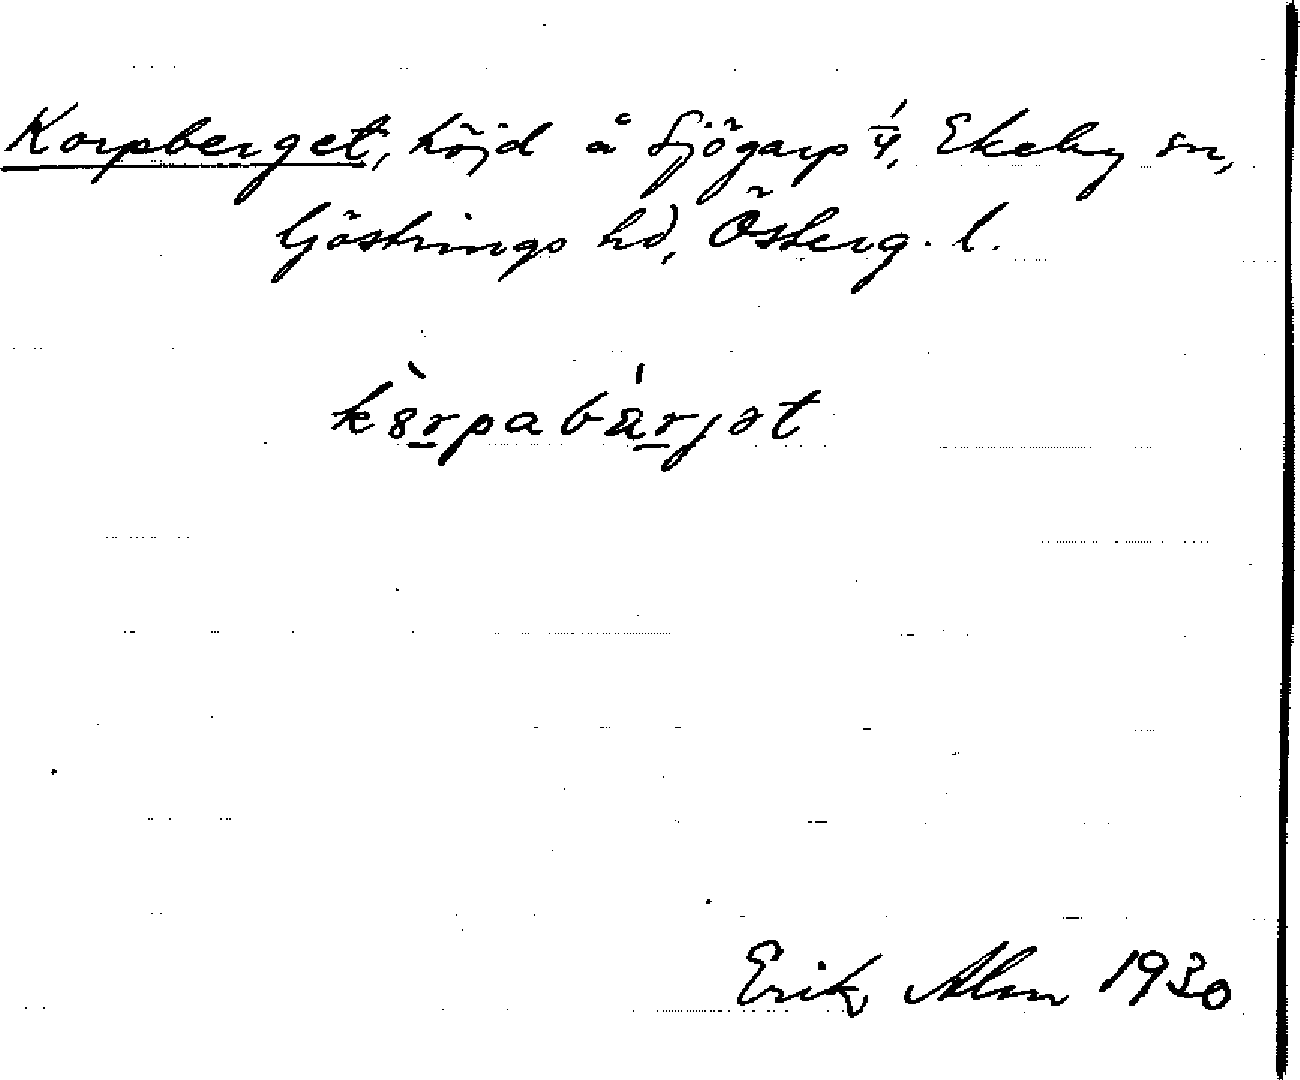 Korpberget, höjd å Sjögarp 1/4, Ekeby sn,
Göstrings hd, Österg. l.
kòrpabárjət
Erik Alm 1930